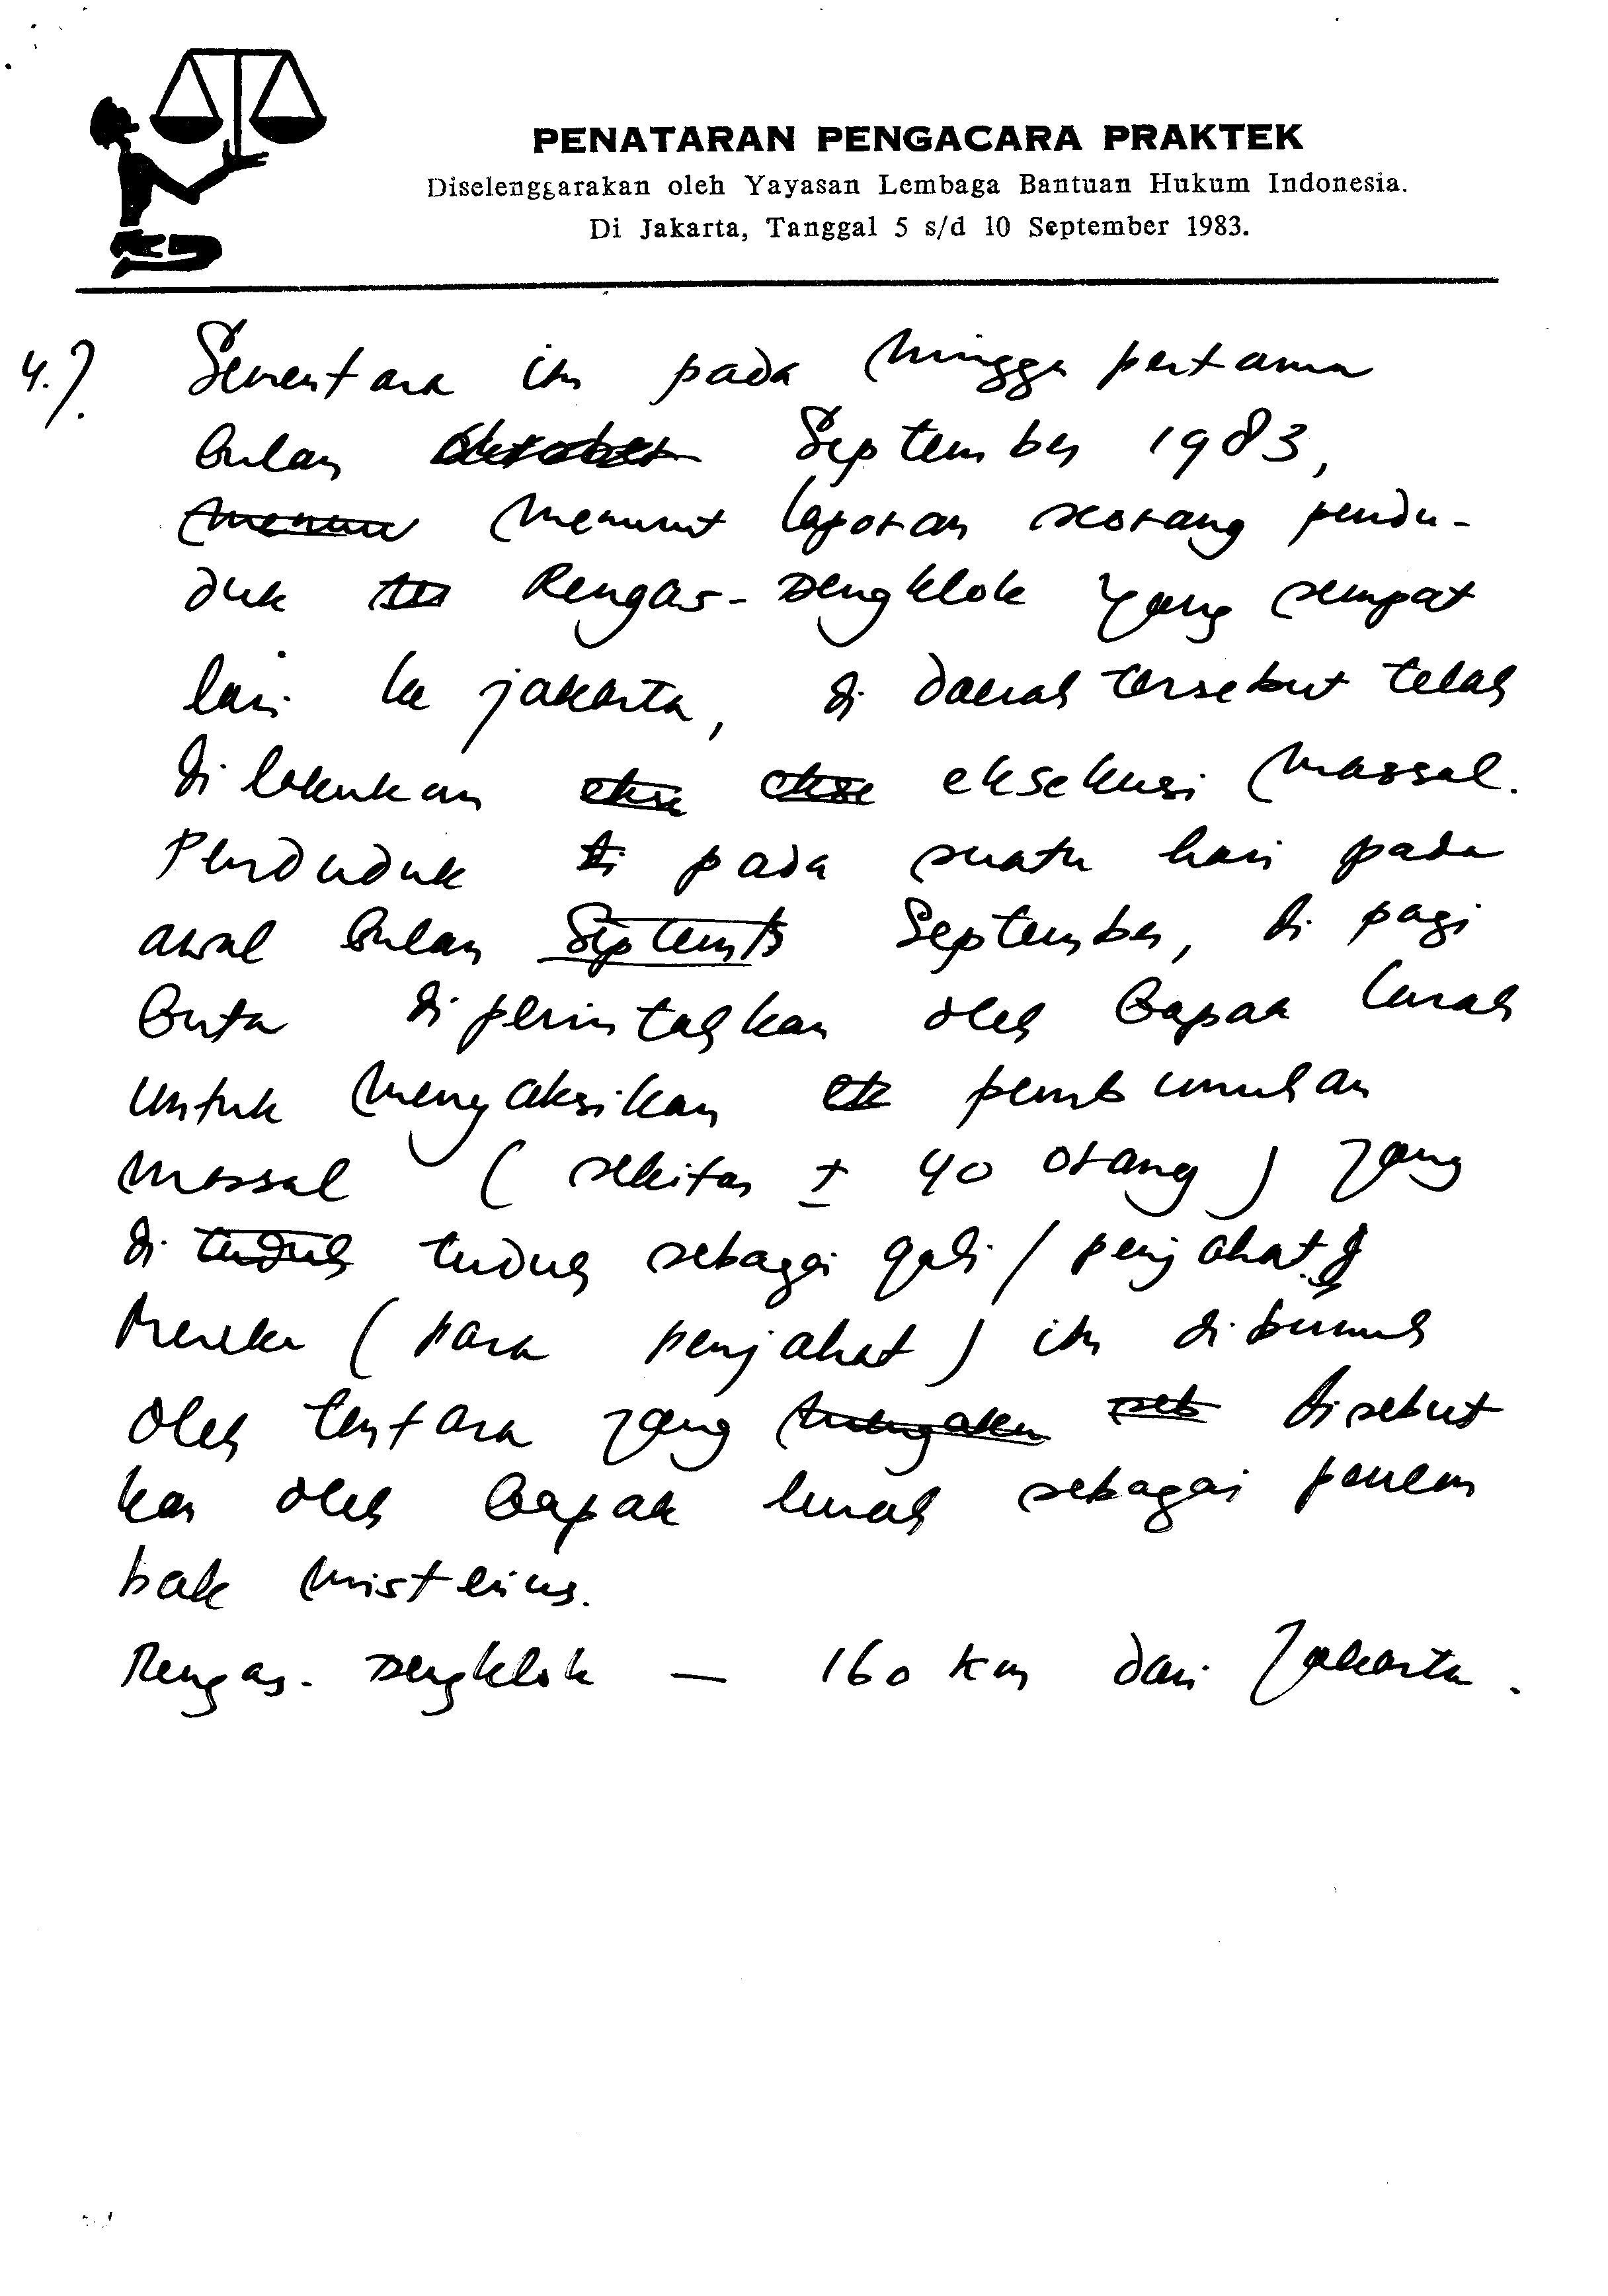 PENATARAN PENGACARA PRAKTEK
Diselenggarakan oleh Yayasan Lembaga Bantuan Hukum Indonesia.
Di Jakarta, Tanggal 5 s/d 10 September 1983.
4.) Sementara itu pada minggu pertama
bulan Oktober September 1983,
menuru menurut laporan seorang pendu-
duk Rengas-Dengklok yang sempat
lari ke jakarta, di daerah tersebut telah
di lakukan ekse ekse eksekusi massal.
Penduduk di pada suatu hari pada
awal bulan Septemb September, di pagi
buta di perintahkan oleh bapak lurah
untuk menyaksikan ek pembunuhan
massal (sekitar ± 40 orang) yang
di tuduh tuduh sebagai gali / penjahat.
Mereka (para penjahat) itu di bunuh
oleh tentara yang seb disebut
kan oleh bapak lurah sebagai penem
bak misterius.
Rengas-Dengklok — 160 km dari Jakarta.